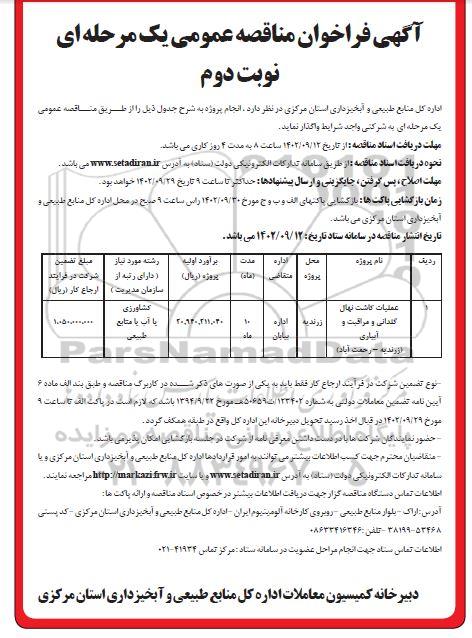 آگهی فراخوان مناقصه عمومی یک مرحله ای
نوبت دوم
اداره کل منابع طبیعی و آبخیزداری استان مرکزی در نظر دارد ، انجام پروژه به شرح جدول ذیل را از طریق مناقصه عمومی
یک مرحله ای به شرکتی واجد شرایط واگذار نماید.
مهلت دریافت اسناد مناقصه : از تاریخ ۱۴۰۲/۰۹/۱۲ ساعت ۸ به مدت ۴ روز کاری می باشد.
نحوه دریافت اسناد مناقصه : از طریق سامانه تدارکات الکترونیکی دولت (ستاد) به آدرس www.setadiran.ir می باشد.
مهلت اصلاح، پس گرفتن ، جایگزینی و ارسال پیشنهادها: حداکثر تا ساعت ۹ تاریخ ۱۴۰۲/۰۹/۲۹ خواهد بود.
زمان بازگشایی پاکت ها : بازگشایی پاکتهای الف و ب و ج مورخ ۱۴۰۲/۰۹/۳۰ راس ساعت ۹ صبح در محل اداره کل منابع طبیعی و
آبخیزداری استان مرکزی می باشد.
تاریخ انتشار مناقصه در سامانه ستاد تاریخ: ۱۴۰۲/۰۹/۱۲ می باشد.
ردیف نام پروژه محل پروژه اداره متقاضی مدت (ماه) برآورد اولیه پروژه (ریال) رشته مورد نیاز ( دارای رتبه از سازمان مدیریت ) مبلغ تضمین شرکت در فرایند ارجاع کار (ریال)
۱ عملیات کاشت نهال گلدانی و مراقبت و آبیاری (زرندیه – رحمت آباد) زرندیه اداره بیابان ۱۰ ماه ۲۰،۹۴۰،۲۱۱،۰۴۰ کشاورزی یا آب یا منابع طبیعی ۱،۰۵۰،۰۰۰،۰۰۰
-نوع تضمین شرکت در فرآیند ارجاع کار فقط باید به یکی از صورت های ذکر شده در کاربرگ مناقصه و طبق بند الف ماده ۶
آیین نامه تضمین معاملات دولتی به شماره ۱۲۳۴۰۲/ت۵۰۶۵۹هـ مورخ ۱۳۹۴/۹/۲۲ باشد که لازم است در پاکت الف تا ساعت ۹
مورخ ۱۴۰۲/۰۹/۲۹ در قبال اخذ رسید تحویل دبیرخانه این اداره کل واقع در طبقه همکف گردد.
- حضور نمایندگان شرکت ها با در دست داشتن معرفی نامه از شرکت در جلسه بازگشایی امکان پذیر می باشد.
- متقاضیان محترم جهت کسب اطلاعات بیشتر می توانند به امور قراردادها اداره کل منابع طبیعی و آبخیزداری استان مرکزی و یا
سامانه تدارکات الکترونیکی دولت (ستاد) به آدرس www.setadiran.ir و یا سایت http://markazi.frw.ir مراجعه نمایند.
اطلاعات تماس دستگاه مناقصه گزار جهت دریافت اطلاعات بیشتر در خصوص اسناد مناقصه و ارائه پاکت ها :
آدرس:اراک – بلوار منابع طبیعی – روبروی کارخانه آلومینیوم ایران -اداره کل منابع طبیعی و آبخیزداری استان مرکزی - کد پستی
۳۸۱۹۹-۵۳۴۶۸ -تلفن:۰۸۶۳۳۴۱۶۳۴۶
اطلاعات تماس ستاد جهت انجام مراحل عضویت در سامانه ستاد : مرکز تماس ۴۱۹۳۴-۰۲۱
دبیرخانه کمیسیون معاملات اداره کل منابع طبیعی و آبخیزداری استان مرکزی